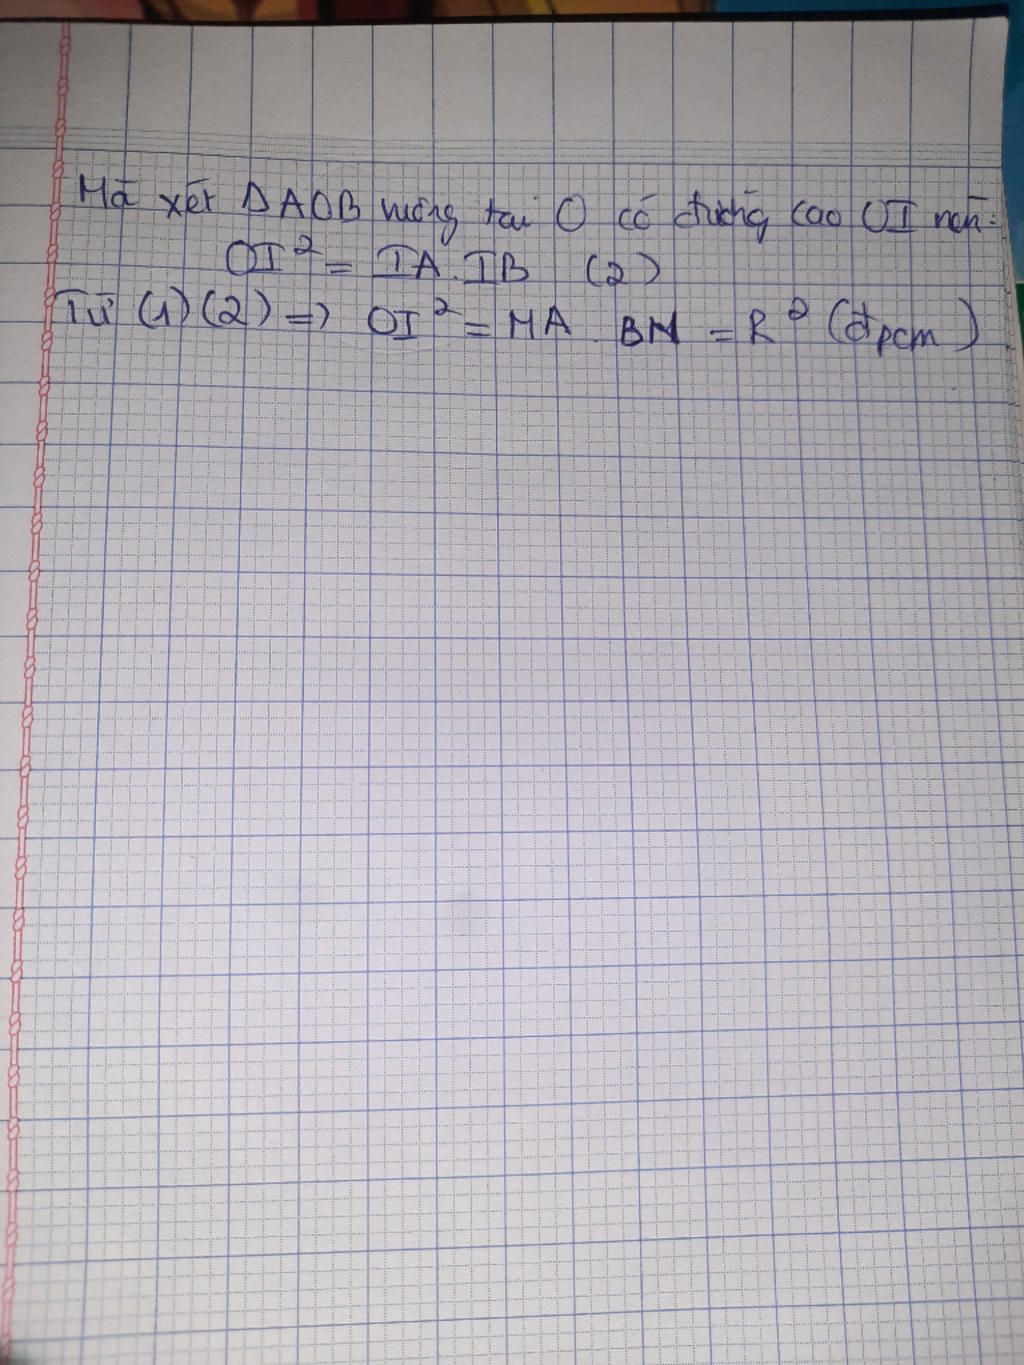 Mà xét ΔAOB vuông tại O có đường cao OI nên:
OI² = IA.IB (2)
Từ (1)(2) => OI² = MA.BN = R² (đpcm)